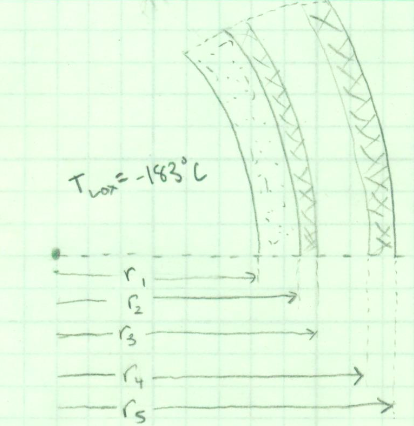 T_LOX = -183°C
r₁
r₂
r₃
r₄
r₅